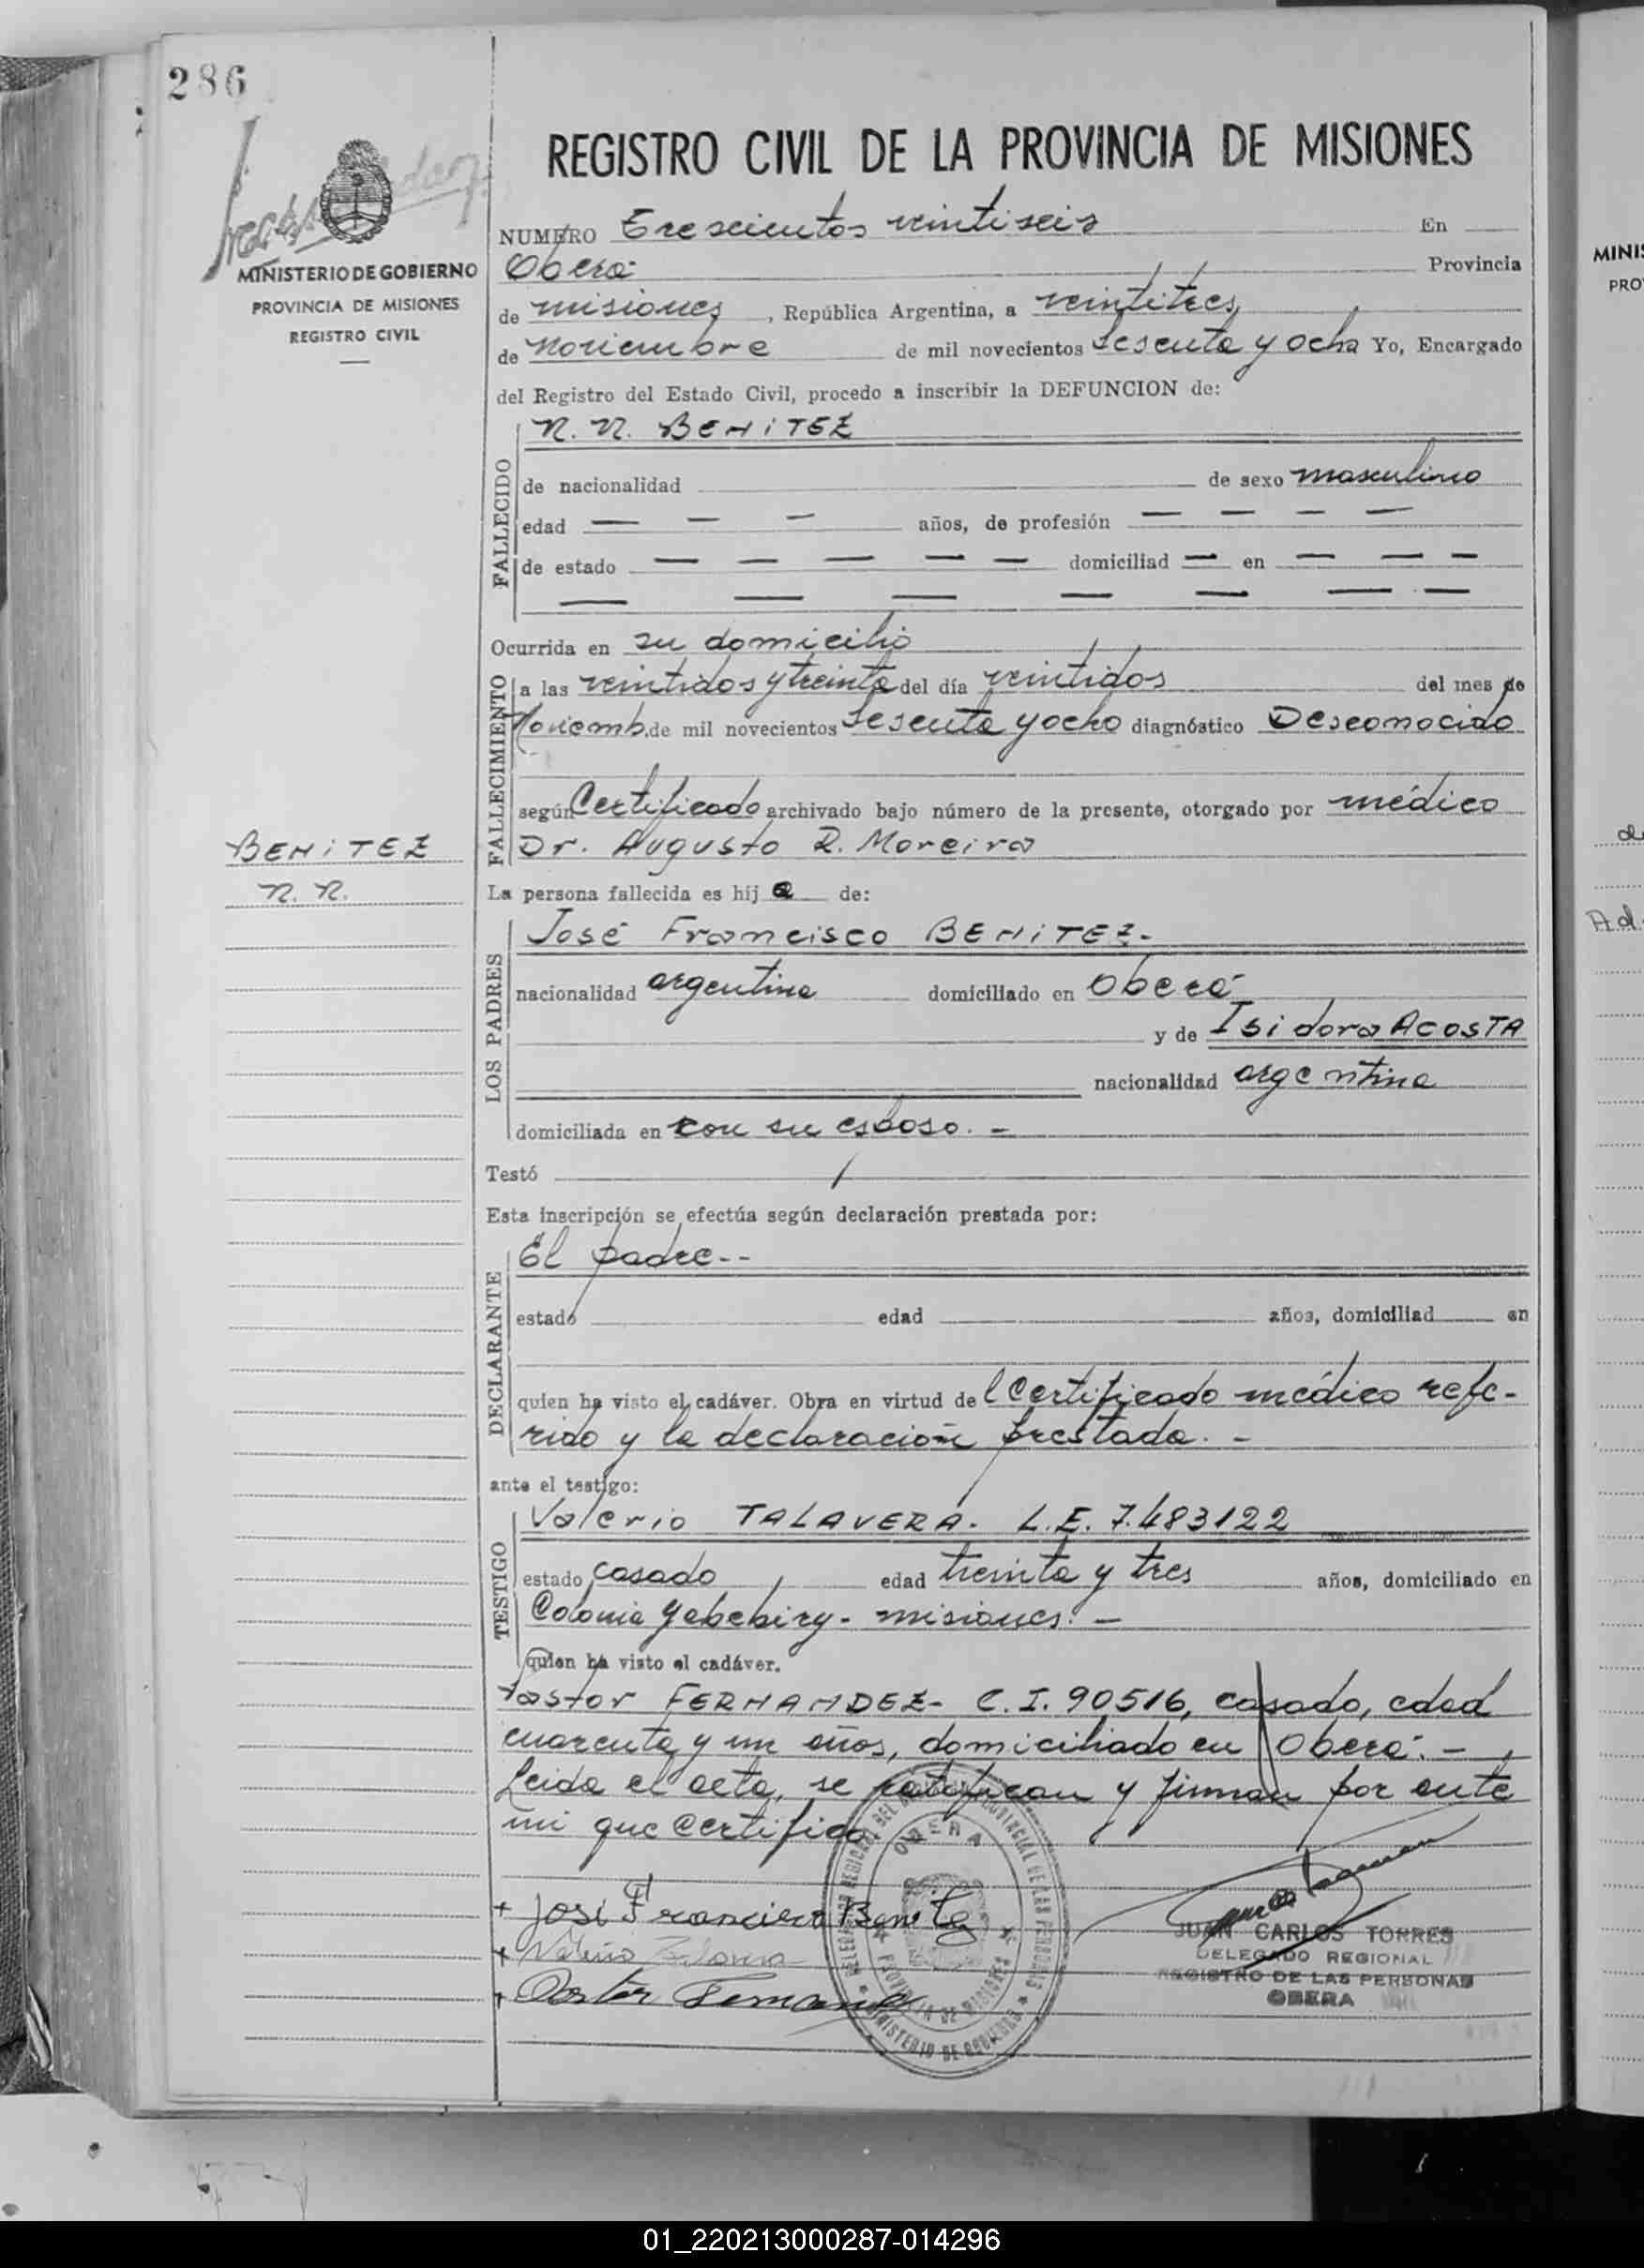 286
REGISTRO CIVIL DE LA PROVINCIA DE MISIONES
MINISTERIO DE GOBIERNO
PROVINCIA DE MISIONES
REGISTRO CIVIL
NUMERO Trescientos veintiseis En
Oberá Provincia
de misiones, República Argentina, a veintitres
de noviembre de mil novecientos Sesenta y ocho Yo, Encargado
del Registro del Estado Civil, procedo a inscribir la DEFUNCION de:
FALLECIDO
N. N. BENITEZ
de nacionalidad de sexo masculino
edad — — — años, de profesión — — — —
de estado — — — — — domiciliad — en — — —
— — — — — — —
Ocurrida en su domicilio
FALLECIMIENTO
a las veintidos y treinta del día veintidos del mes de
Noviemb. de mil novecientos Sesenta y ocho diagnóstico Desconocido
según Certificado archivado bajo número de la presente, otorgado por médico
Dr. Augusto R. Moreira
BENITEZ
N. N.
La persona fallecida es hij o de:
LOS PADRES
José Francisco BENITEZ.-
nacionalidad argentina domiciliado en Oberá
y de Isidora ACOSTA
nacionalidad argentina
domiciliada en con su esposo. -
Testó
Esta inscripción se efectúa según declaración prestada por:
DECLARANTE
El padre--
estado edad años, domiciliad en
quien ha visto el cadáver. Obra en virtud de l Certificado médico refe-
rido y la declaración prestada. -
ante el testigo:
TESTIGO
Valerio TALAVERA. L.E. 7.483122
estado casado, edad treinta y tres años, domiciliado en
Colonia Yabebiry - misiones. -
quien ha visto el cadáver.
Pastor FERNANDEZ- C.I. 90516, casado, edad
cuarenta y un años, domiciliado en Oberá. -
Leida el acta, se ratifican y firman por ante
mi que certifico.
OBERA
PROVINCIA DE MISIONES
MINISTERIO DE GOBIERNO
+ José Francisco Benitez
JUAN CARLOS TORRES
DELEGADO REGIONAL
REGISTRO DE LAS PERSONAS
OBERA
+ Pastor Fernandez
MINIS
PRO
01_220213000287-014296